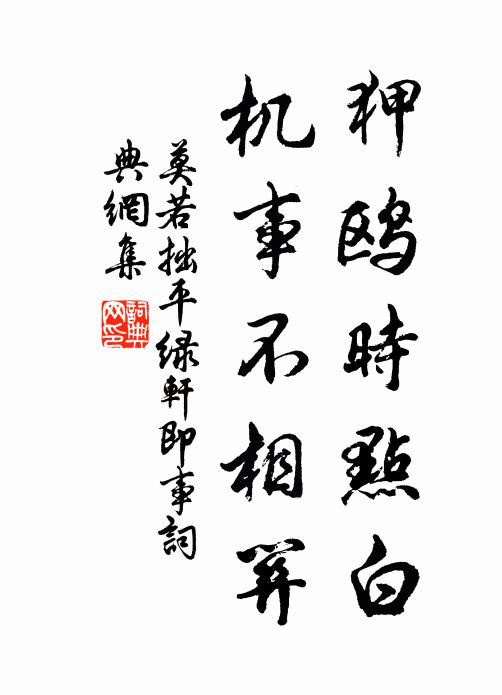 狎鸥時點白
机事不相关
莫若拙平绿軒即事詞
典網集
詞典
网印